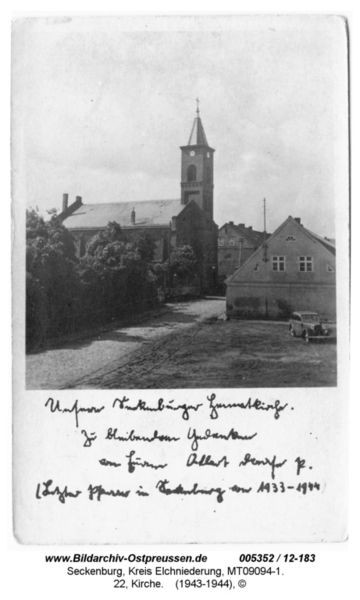 Unsere Seckenburger Heimatkirche.
Zu bleibendem Gedenken
an Euren Albert
(Letzter Pfarrer in Seckenburg von 1933-1944)
www.Bildarchiv-Ostpreussen.de 005352 / 12-183
Seckenburg, Kreis Elchniederung, MT09094-1.
22, Kirche. (1943-1944), ©